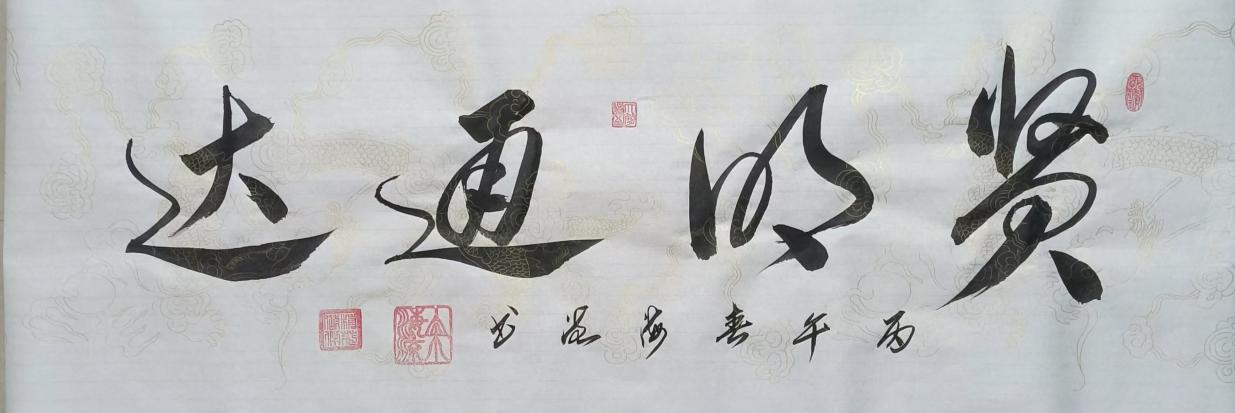 贤明通达
丙午春海流书